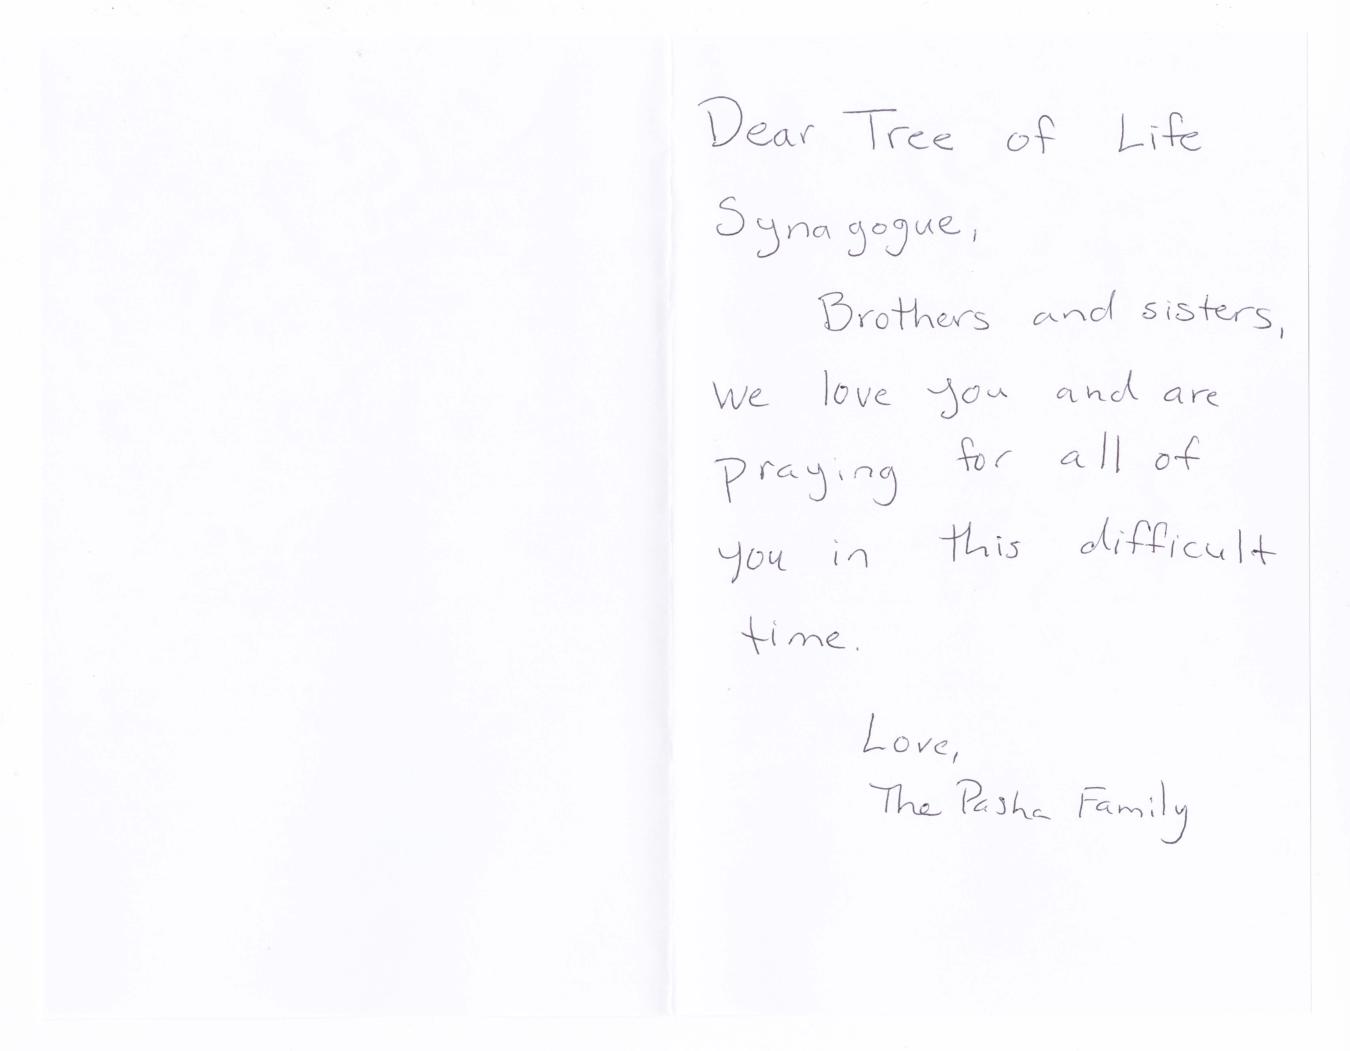 Dear Tree of Life
Synagogue,
Brothers and sisters,
we love you and are
praying for all of
you in this difficult
time.
Love,
The Pasha Family